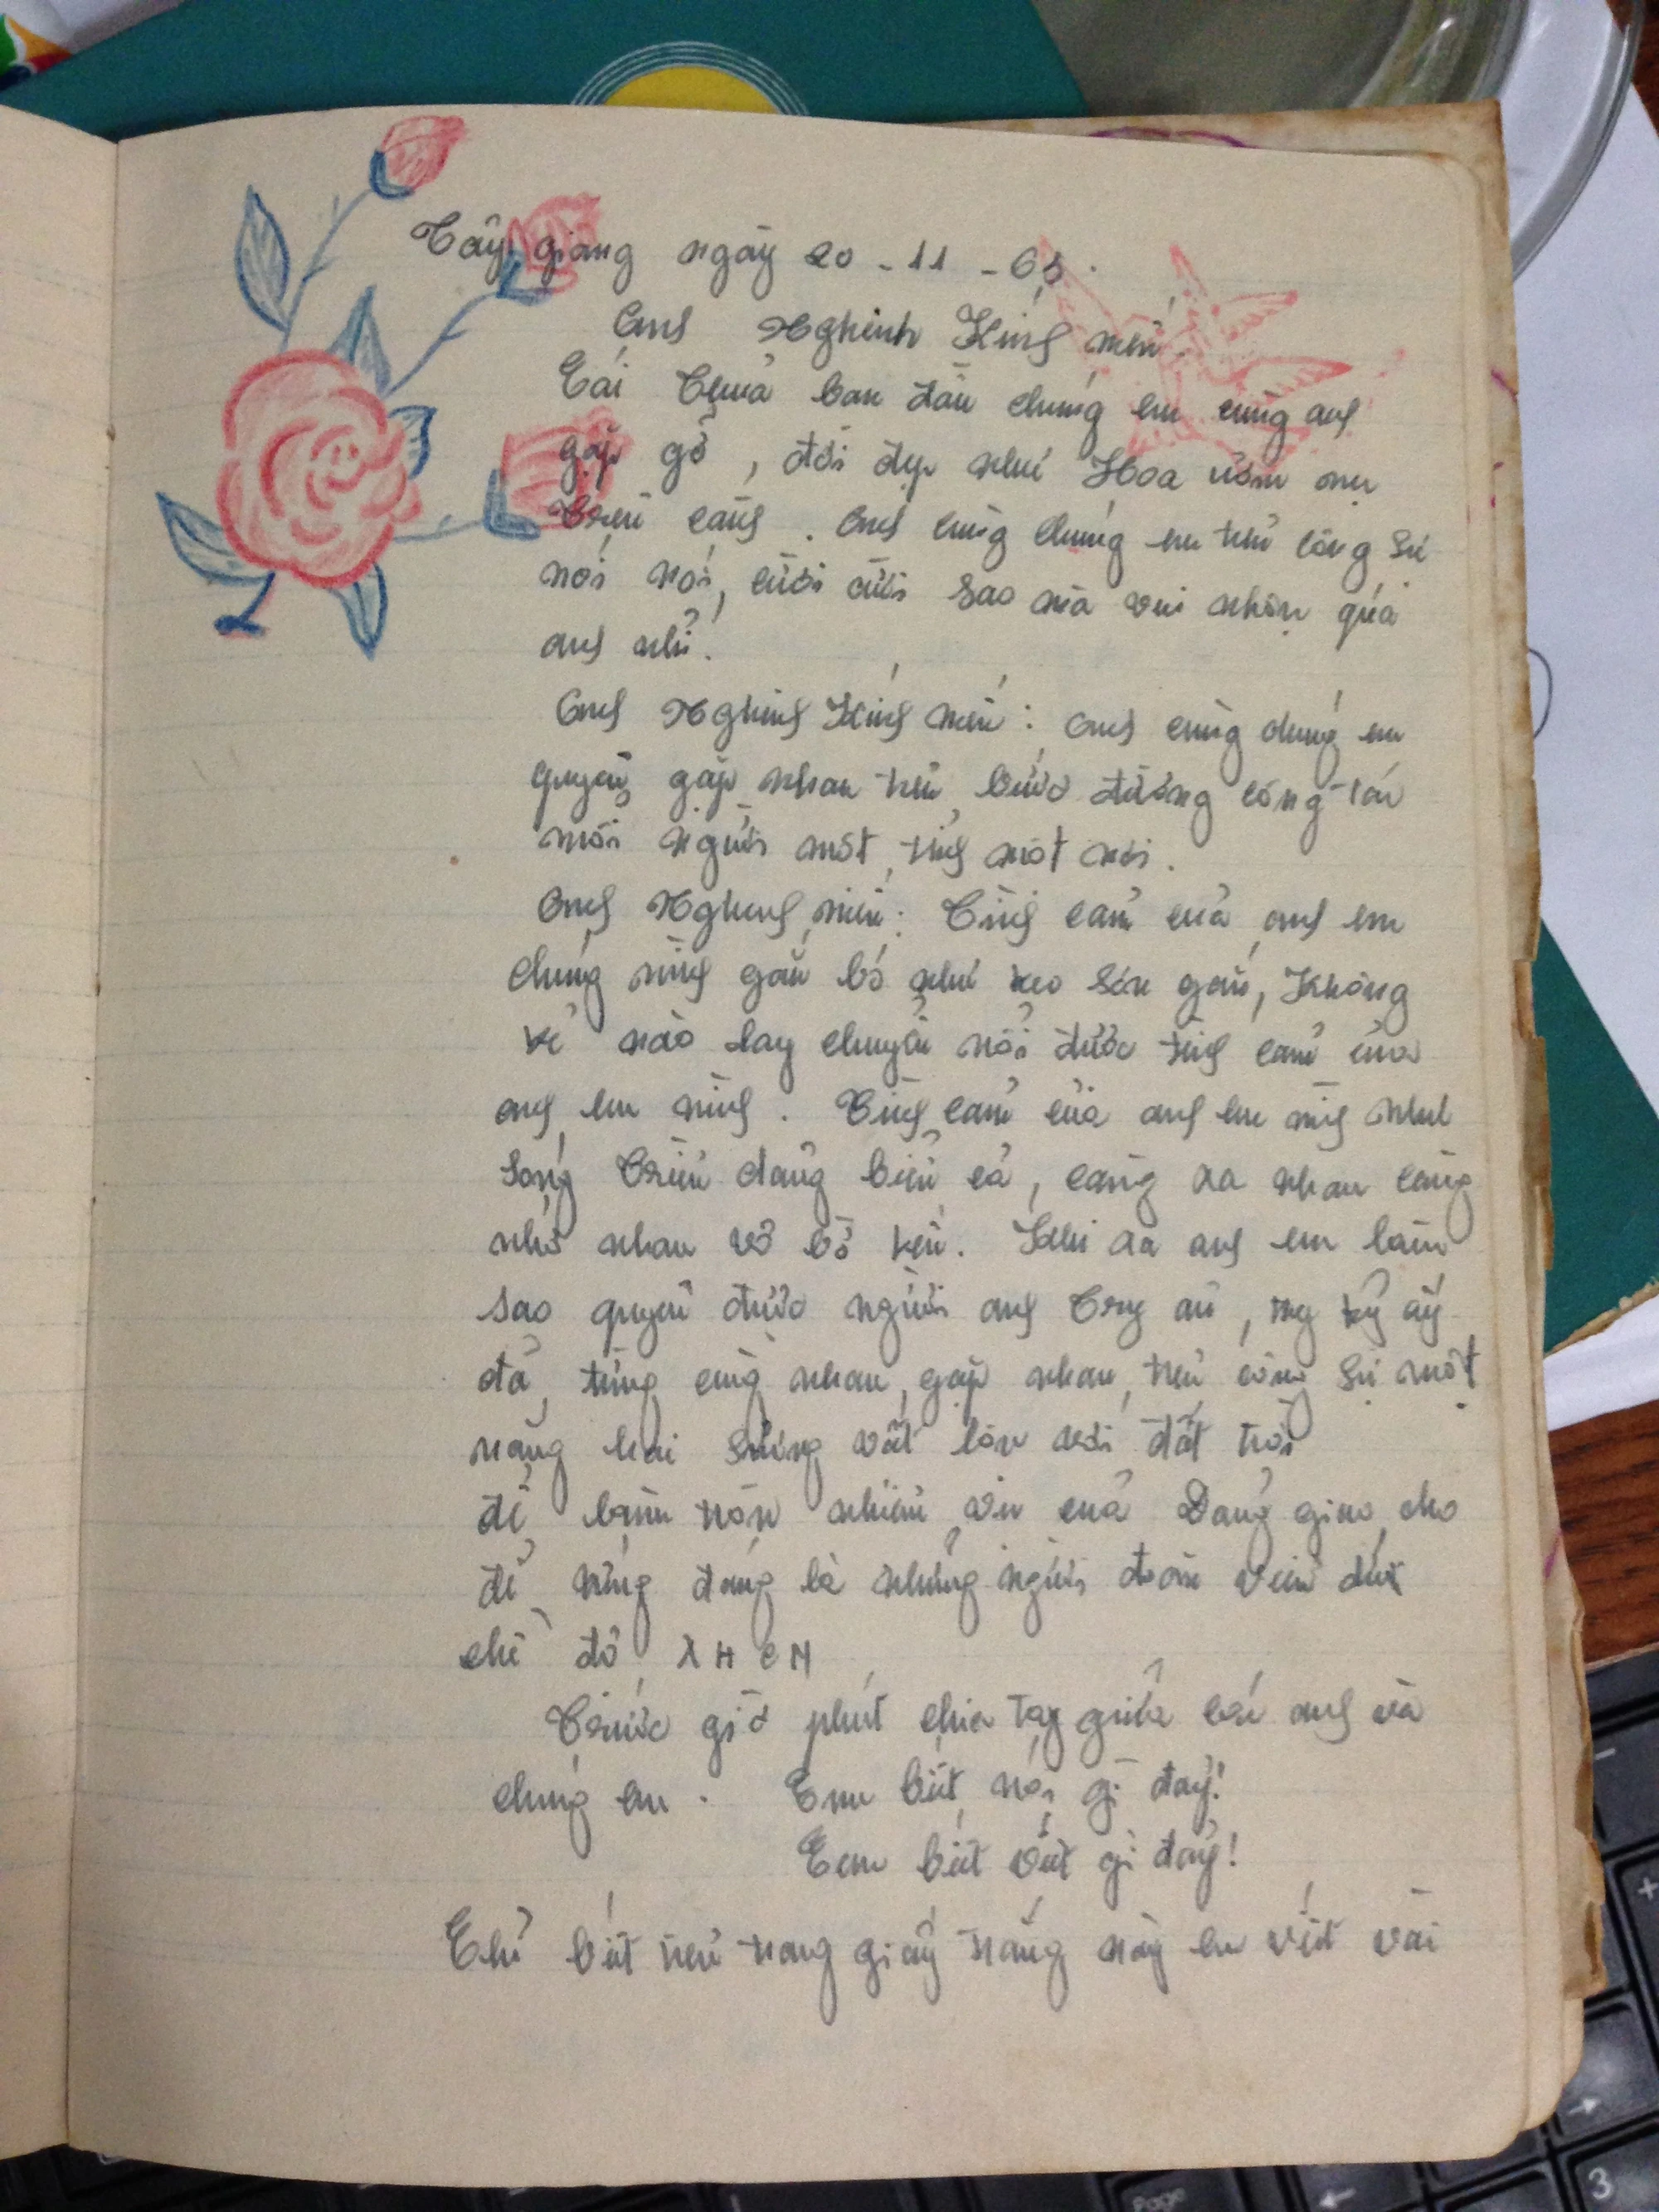 Tây giang ngày 20 - 11 - 65.
Anh Nghinh Kính mến.
Cái Thủa ban đầu chúng em cùng anh
gặp gỡ, đời đẹp như Hoa ươm nụ
Trên cành. Anh cùng chúng em trên công sự
nói nói, cười cười sao mà vui nhộn qúa
anh nhỉ.
Anh Nghinh Kính mến: Anh cùng chúng em
quyện gặp nhau trên bước đường công tác
mỗi người một tỉnh một nơi.
Anh Nghinh mến: Tình cảm của anh em
chúng mình gắn bó như keo sơn gắn, Không
kẻ nào lay chuyển nổi được tình cảm của
anh em mình. Tình cảm của anh em mình như
Sóng Triều dâng biển cả, càng xa nhau càng
nhớ nhau vỗ bờ kên. Khi xa anh em làm
sao quyên được người anh Trong ấy
đã từng cùng nhau, gặp nhau, trên công sự một
nắng hai sương vật lộn với đất trời
để làm tròn nhiệm vụ của Đảng giao cho
để xứng đáng là những người đoàn viên dưới
chế độ XHCN
Trước giờ phút chia tay giữa các anh và
chúng em. Em biết nói gì đây!
Eem biết viết gì đây!
Chỉ biết trên trang giấy trắng này em viết vài